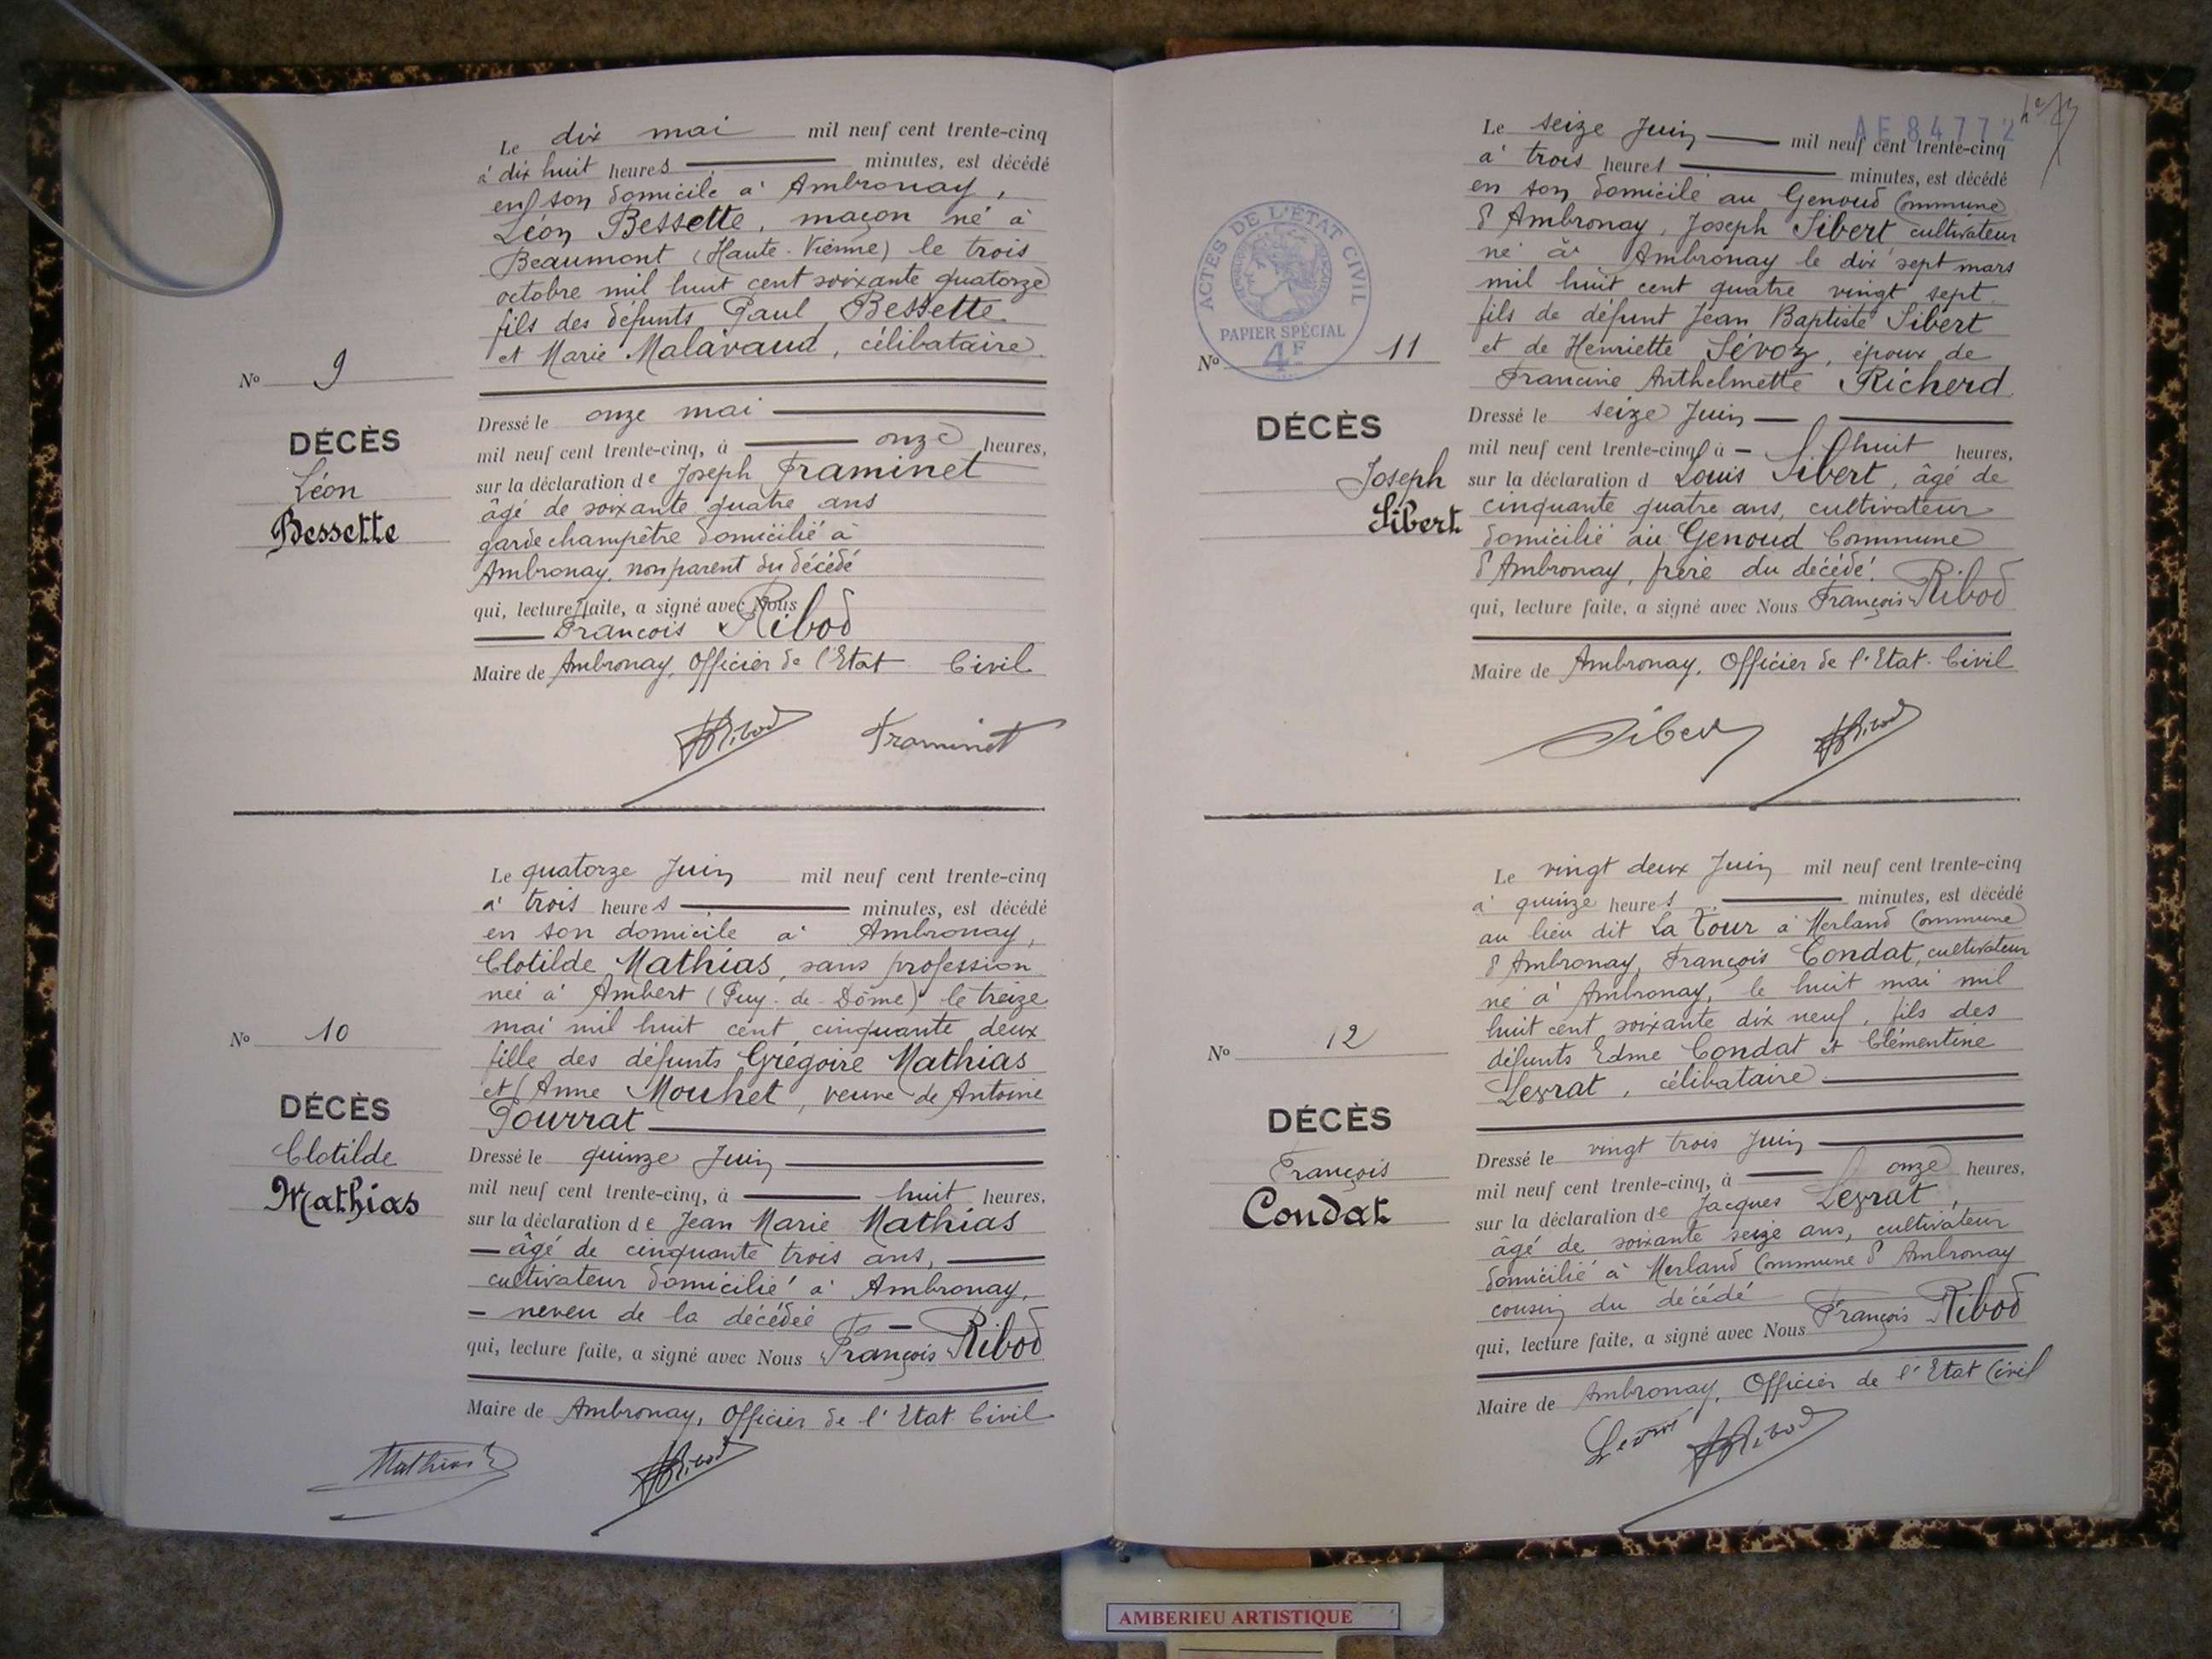 Le dix mai mil neuf cent trente-cinq
à dix huit heures minutes, est décédé
en son domicile à Ambronay,
Léon Bessette, maçon né à
Beaumont (Haute-Vienne) le trois
octobre mil huit cent soixante quatorze
fils des défunts Paul Bessette
et Marie Malavaud, célibataire
No 9
DÉCÈS
Léon
Bessette
Dressé le onze mai
mil neuf cent trente-cinq, à onze heures,
sur la déclaration de Joseph Framinet
âgé de soixante quatre ans
garde champêtre domicilié à
Ambronay, non parent du décédé
qui, lecture faite, a signé avec Nous
François Ribod
Maire de Ambronay, Officier de l'Etat Civil
Ribod Framinet
Le quatorze Juin mil neuf cent trente-cinq
à trois heures minutes, est décédé
en son domicile à Ambronay,
Clotilde Mathias, sans profession
née à Ambert (Puy-de-Dôme) le treize
mai mil huit cent cinquante deux
fille des défunts Grégoire Mathias
et Anne Mouhet, veuve de Antoine
Pourrat
No 10
DÉCÈS
Clotilde
Mathias
Dressé le quinze Juin
mil neuf cent trente-cinq, à huit heures,
sur la déclaration de Jean Marie Mathias
âgé de cinquante trois ans,
cultivateur domicilié à Ambronay,
neveu de la décédée
qui, lecture faite, a signé avec Nous François Ribod
Maire de Ambronay, Officier de l'Etat Civil
Mathias Ribod
AE84772
Le seize Juin mil neuf cent trente-cinq
à trois heures minutes, est décédé
en son domicile au Genoud Commune
d'Ambronay, Joseph Sibert cultivateur
né à Ambronay le dix sept mars
mil huit cent quatre vingt sept
fils de défunt Jean Baptiste Sibert
et de Henriette Sévoz, époux de
Francine Anthelmette Richerd
ACTES DE L'ÉTAT CIVIL
PAPIER SPÉCIAL
4F
No 11
DÉCÈS
Joseph
Sibert
Dressé le seize Juin
mil neuf cent trente-cinq à huit heures,
sur la déclaration d Louis Sibert, âgé de
cinquante quatre ans, cultivateur
domicilié au Genoud Commune
d'Ambronay, frère du décédé.
qui, lecture faite, a signé avec Nous François Ribod
Maire de Ambronay, Officier de l'Etat-Civil
Sibert Ribod
Le vingt deux Juin mil neuf cent trente-cinq
à quinze heures minutes, est décédé
au lieu dit La Tour à Merland Commune
d'Ambronay, François Condat, cultivateur
né à Ambronay, le huit mai mil
huit cent soixante dix neuf, fils des
défunts Edme Condat et Clémentine
Leyrat, célibataire
No 12
DÉCÈS
François
Condat
Dressé le vingt trois Juin
mil neuf cent trente-cinq, à onze heures,
sur la déclaration de Jacques Leyrat,
âgé de soixante seize ans, cultivateur
domicilié à Merland Commune d'Ambronay
cousin du décédé
qui, lecture faite, a signé avec Nous François Ribod
Maire de Ambronay, Officier de l'Etat Civil
Ribod
AMBERIEU ARTISTIQUE